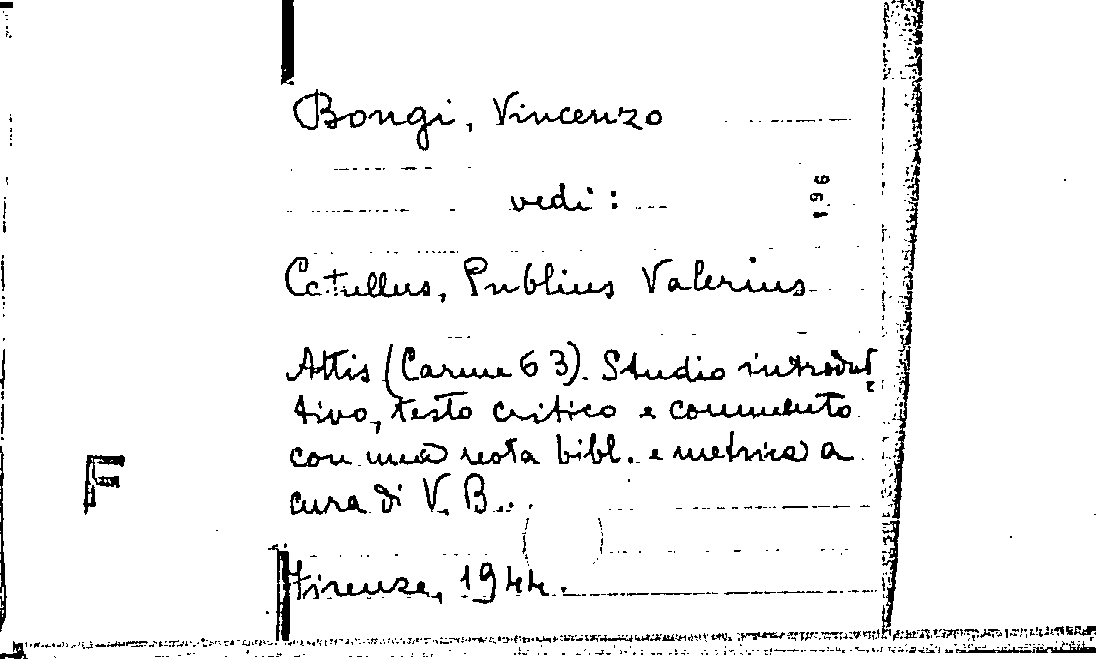 Bongi, Vincenzo
vedi :
196
Catullus, Publius Valerius
Attis (Carme 63). Studio introdut
tivo, testo critico e commento
con una nota bibl. e metrica a
cura di V. B..
F
Firenze, 1944.